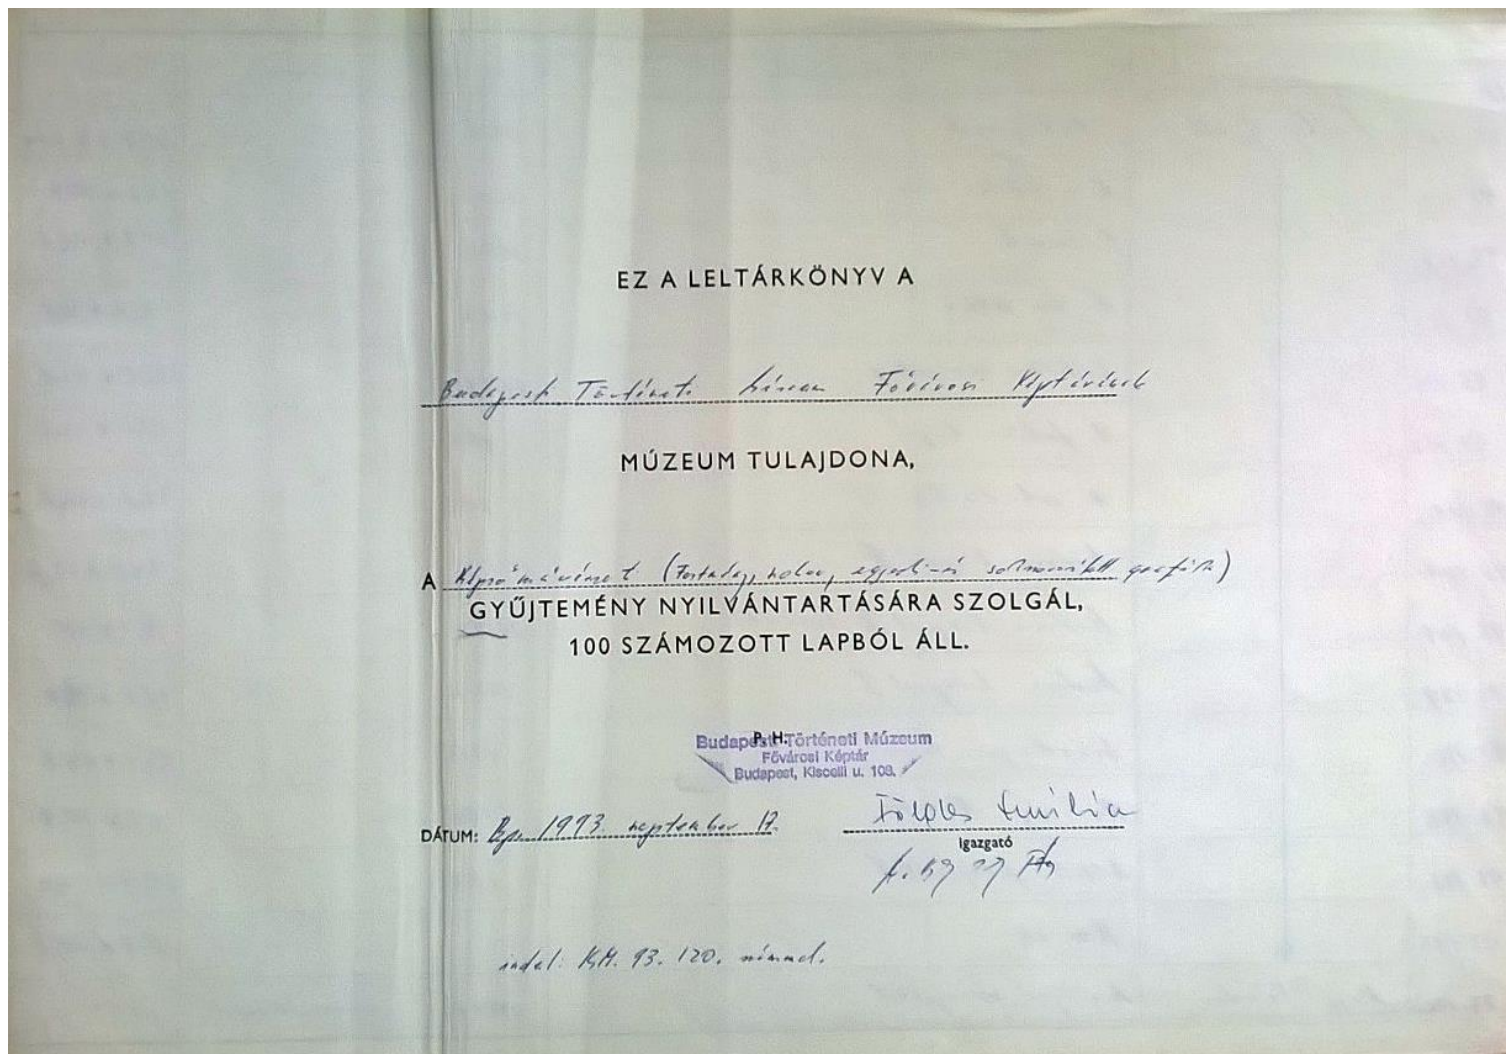 EZ A LELTÁRKÖNYV A
Budapesti Történeti Múzeum Fővárosi Képtárának
MÚZEUM TULAJDONA,
A Képzőművészet (Festmény, szobor, egyedi- és sokszorosított grafika)
GYŰJTEMÉNY NYILVÁNTARTÁSÁRA SZOLGÁL,
100 SZÁMOZOTT LAPBÓL ÁLL.
P. H.
Budapesti Történeti Múzeum
Fővárosi Képtár
Budapest, Kiscelli u. 108.
DÁTUM: Bp. 1993. szeptember 17.
Földes Emília
Igazgató
indul: KM. 93. 120. számmal.